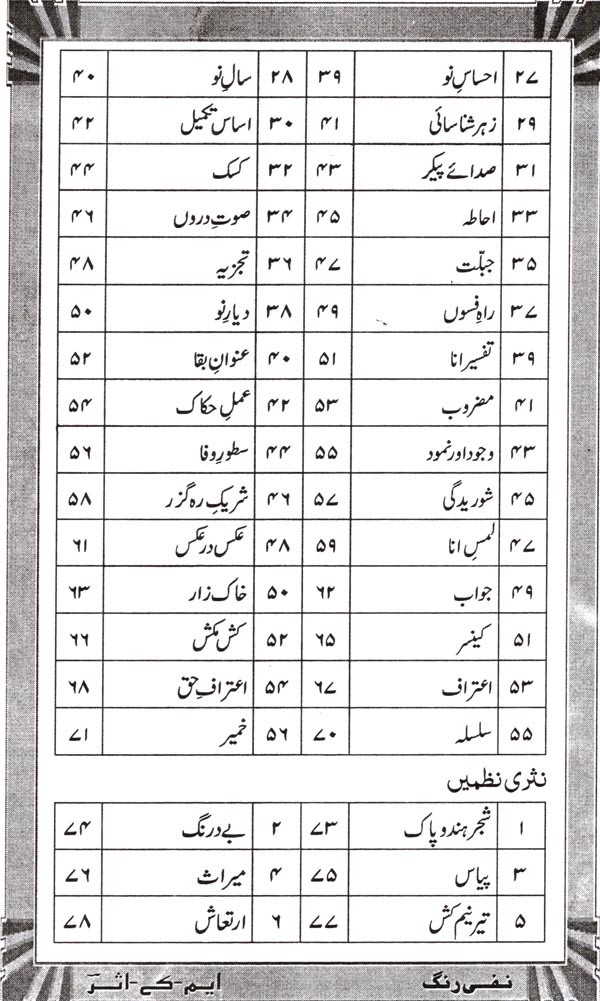 ۲۷ احساسِ نو ۳۹ ۲۸ سالِ نو ۴۰
۲۹ زہر شناسائی ۴۱ ۳۰ اساس تکمیل ۴۲
۳۱ صدائے پیکر ۴۳ ۳۲ کسک ۴۴
۳۳ احاطہ ۴۵ ۳۴ صوتِ دروں ۴۶
۳۵ جبلّت ۴۷ ۳۶ تجزیہ ۴۸
۳۷ راہِ فسوں ۴۹ ۳۸ دیارِ نو ۵۰
۳۹ تفسیر انا ۵۱ ۴۰ عنوانِ بقا ۵۲
۴۱ مضروب ۵۳ ۴۲ عملِ حکاک ۵۴
۴۳ وجود اور نمود ۵۵ ۴۴ سطورِ وفا ۵۶
۴۵ شوریدگی ۵۷ ۴۶ شریکِ رہ گزر ۵۸
۴۷ لمسِ انا ۵۹ ۴۸ عکس در عکس ۶۱
۴۹ جواب ۶۲ ۵۰ خاک زار ۶۳
۵۱ کینسر ۶۵ ۵۲ کش مکش ۶۶
۵۳ اعتراف ۶۷ ۵۴ اعترافِ حق ۶۸
۵۵ سلسلہ ۷۰ ۵۶ خمیر ۷۱
نثری نظمیں
۱ شجر ہند و پاک ۷۳ ۲ بے درنگ ۷۴
۳ پیاس ۷۵ ۴ میراث ۷۶
۵ تیر نیم کش ۷۷ ۶ ارتعاش ۷۸
نفی رنگ ایم-کے-اثرؔ